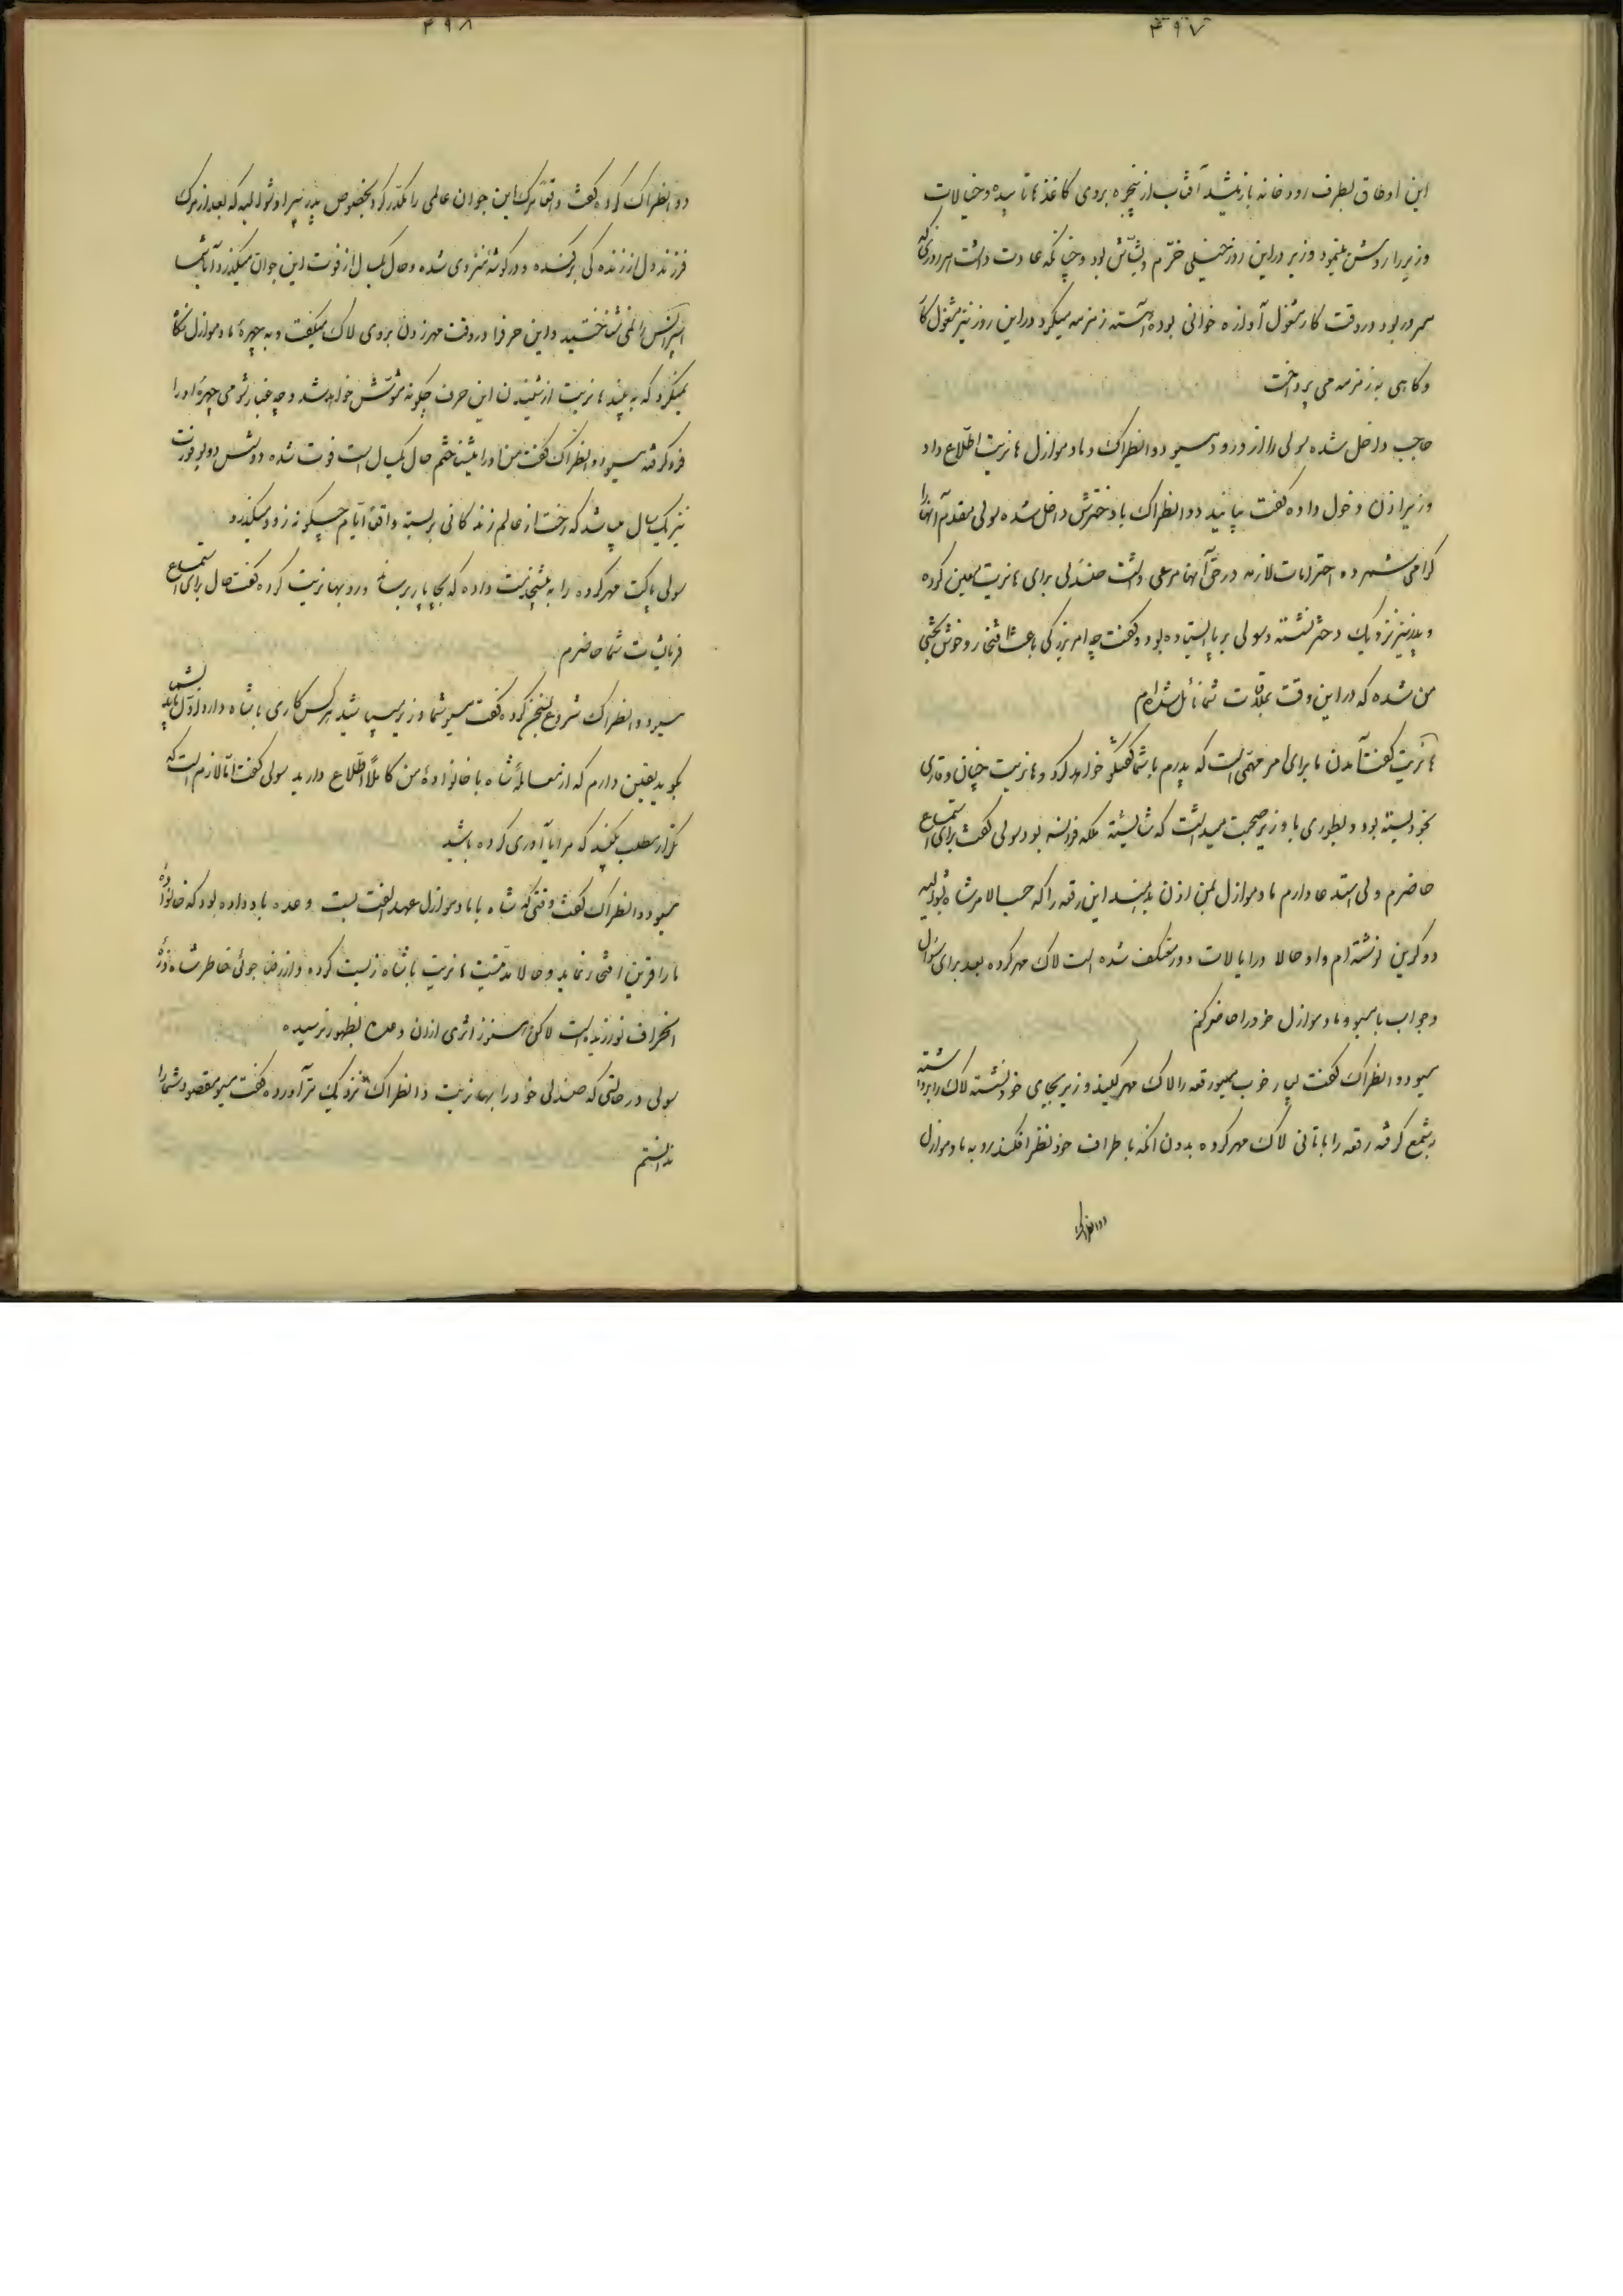 ۴۹۷
این اوطاق بطرف رودخانه باز میشد آفتاب از پنجره بروی کاغذها تابیده و خیالات
وزیر را روشن مینمود وزیر در این روز خیلی خرّم و بشّاش بود و چنانکه عادت داشت هر روزی که
مسرور بود در وقت کار مشغول آوازه خوانی بوده آهسته زمزمه میکرد در این روز نیز مشغول کار
و گاهی به زمزمه می پرداخت
حاجب داخل شده سولی را از ورود مسیو دوانطراک و مادموازل هانریت اطّلاع داد
وزیر اذن دخول داده گفت بیایند دوانطراک با دخترش داخل شده سولی مقدم آنها را
گرامی شمرده احترامات لازمه در حقّ آنها مرعی داشت صندلی برای هانریت معین کرده
و پدر نیز نزدیک دختر نشسته و سولی بر پا ایستاده بود و گفت چه امر بزرگی باعث افتخار و خوش بختی
من شده که در این وقت بملاقات شما نائل شده ام
هانریت گفت آمدن ما برای امر مهمّی است که پدرم با شما گفتگو خواهد کرد و هانریت چنان وقاری
بخود بسته بود و بطوری با وزیر صحبت میداشت که شایسته ملکه فرانسه بود سولی گفت برای استماع
حاضرم ولی استدعا دارم مادموازل بمن اذن بدهند این رقعه را که حسب الامر شاه بدوالیه
دوکرین نوشته ام و او حالا در ایالات دور معتکف شده است لاک مهر کرده بعد برای سؤال
و جواب با مسیو و مادموازل خود را حاضر کنم
مسیو دوانطراک گفت بسیار خوب مسیو رقعه را لاک مهر کنید وزیر بجای خود نشسته لاک را برداشته
بشمع گرفته رقعه را با تانی لاک مهر کرده بدون آنکه باطراف خود نظر افکند رو به مادموازل
دوانطراک
۴۹۸
دوانطراک کرده گفت واقعا مرگ این جوان عالمی را مکدّر کرد بخصوص پدر پیر او شوالیه که بعد از مرگ
فرزند دل از زندگی برکنده و در گوشه منزوی شده و حال یکسال از فوت این جوان میگذرد آیا شما
اسپرانس را نمی شناختید و این حرف را در وقت مهر زدن بروی لاک میگفت و به چهرهٔ مادموازل نگاه
نمیکرد که به بیند هانریت از شنیدن این حرف چگونه مشوّش خواهد شد و چه غبار شومی چهره او را
فرو گرفته مسیو دوانطراک گفت من او را میشناختم حال یکسال است فوت شده دوشس دوبوفورت
نیز یکسال میباشد که رخت از عالم زندگانی بربسته واقعاً ایّام چگونه زود میگذرد
سولی پاکت مهر کرده را به پیشخدمت داده که بچاپار برساند و رو بهانریت کرده گفت حال برای استماع
فرمایشات شما حاضرم
مسیو دوانطراک شروع بسخن کرده گفت مسیو شما وزیر میباشید هر کس کاری با شاه دارد اوّل باید بشما
بگوید یقین دارم که از معاملهٔ شاه با خانوادهٔ من کاملاً اطّلاع دارید سولی گفت امّا لازم است که
تکرار مطلب بکنید که مرا یادآوری کرده باشید
مسیو دوانطراک گفت وقتی که شاه با مادموازل عهد الفت بست وعده باو داده بود که خانوادهٔ
ما را قرین افتخار نماید و حالا مدّتیست هانریت با شاه زیست کرده و از رضا جوئی خاطر شاه ذرّهٔ
انحراف نورزیده است لاکن هنوز اثری از آن وعده بظهور نرسیده
سولی در حالتی که صندلی خود را بهانریت دانطراک نزدیک تر آورده گفت مسیو مقصود شما را
ندانستم